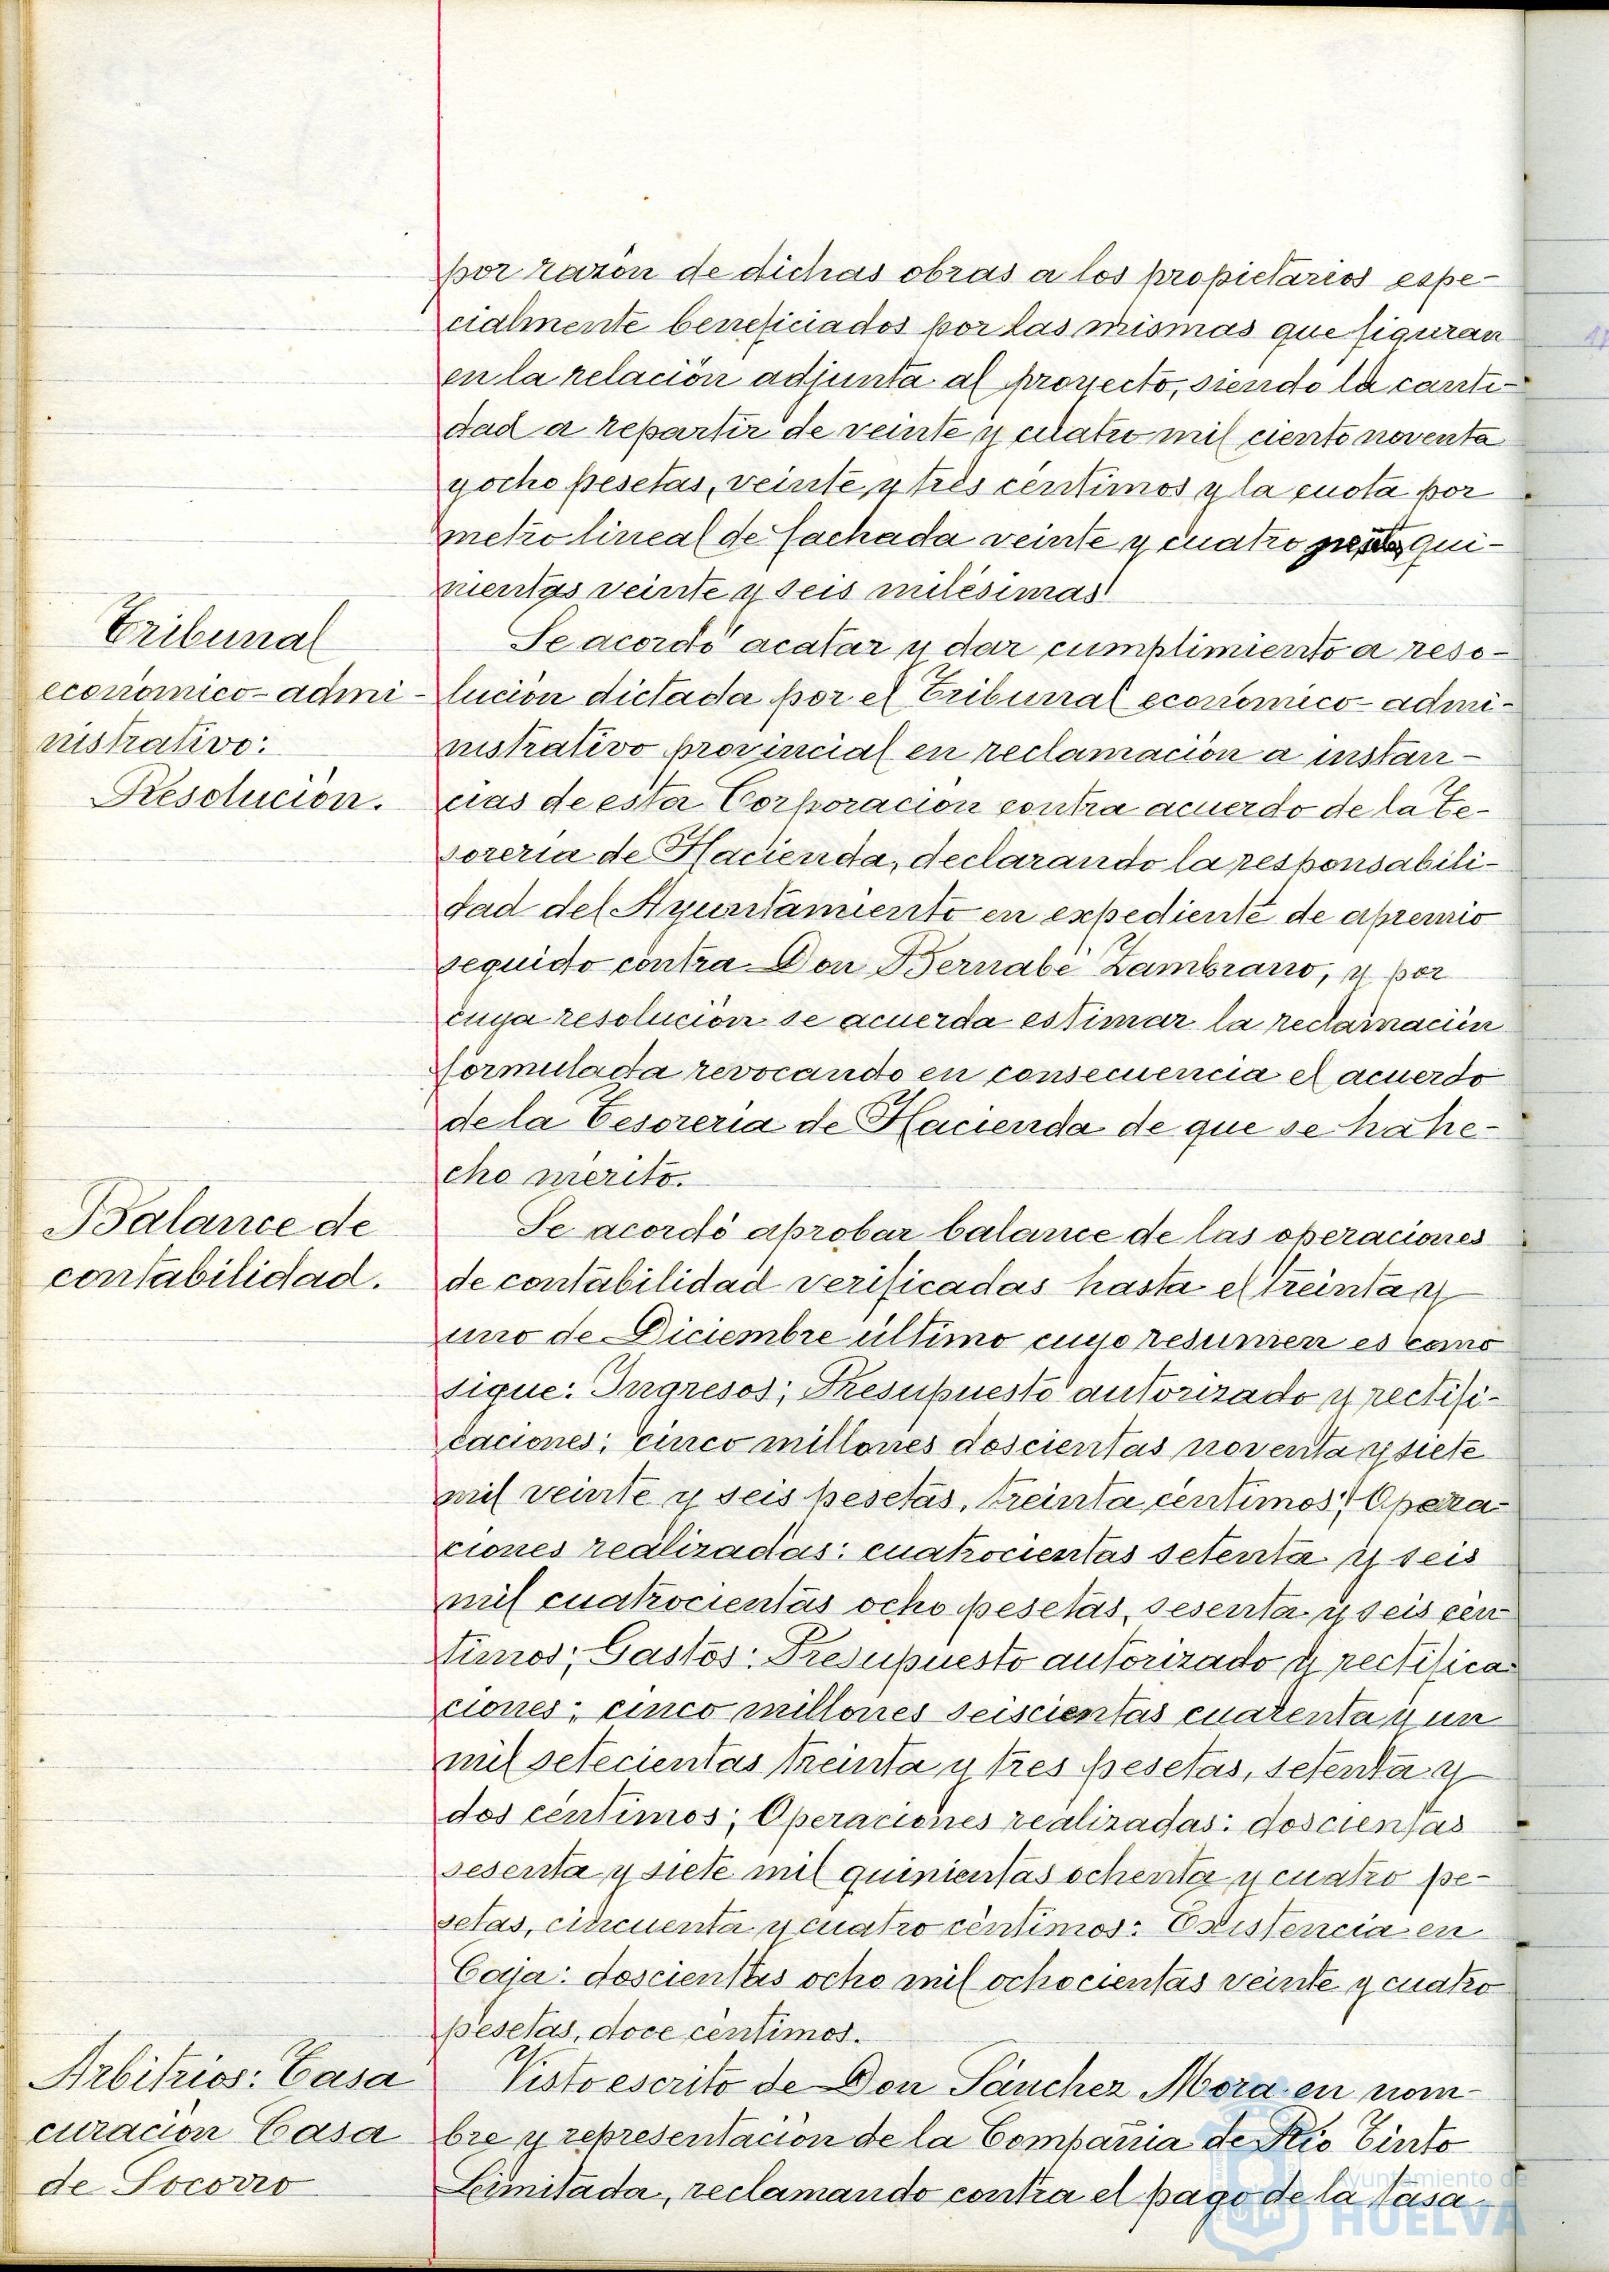 por razón de dichas obras a los propietarios espe-
cialmente beneficiados por las mismas que figuran
en la relación adjunta al proyecto, siendo la canti-
dad a repartir de veinte y cuatro mil ciento noventa
y ocho pesetas, veinte y tres céntimos y la cuota por
metro lineal de fachada veinte y cuatro qui-
nientas veinte y seis milésimas
Tribunal
económico-admi-
nistrativo:
Resolución.
Se acordó acatar y dar cumplimiento a reso-
lución dictada por el Tribunal económico-admi-
nistrativo provincial en reclamación a instan-
cias de esta Corporación contra acuerdo de la Te-
sorería de Hacienda, declarando la responsabili-
dad del Ayuntamiento en expediente de apremio
seguido contra Don Bernabé Zambrano, y por
cuya resolución se acuerda estimar la reclamación
formulada revocando en consecuencia el acuerdo
de la Tesorería de Hacienda de que se ha he-
cho mérito.
Balance de
contabilidad.
Se acordó aprobar balance de las operaciones
de contabilidad verificadas hasta el treinta y
uno de Diciembre último cuyo resumen es como
sigue: Ingresos; Presupuesto autorizado y rectifi-
caciones; cinco millones doscientas noventa y siete
mil veinte y seis pesetas, treinta céntimos; Opera-
ciones realizadas: cuatrocientas setenta y seis
mil cuatrocientas ocho pesetas, sesenta y seis cén
timos; Gastos: Presupuesto autorizado y rectifica-
ciones; cinco millones seiscientas cuarenta y un
mil setecientas treinta y tres pesetas, setenta y
dos céntimos; Operaciones realizadas: doscientas
sesenta y siete mil quinientas ochenta y cuatro pe-
setas, cincuenta y cuatro céntimos: Existencia en
Caja: doscientas ocho mil ochocientas veinte y cuatro
pesetas, doce céntimos.
Arbitrios: Tasa
curación Casa
de Socorro
Visto escrito de Don Sánchez Mora en nom-
bre y representación de la Compañia de Rio Tinto
Limitada, reclamando contra el pago de la tasa
Ayuntamiento de
HUELVA